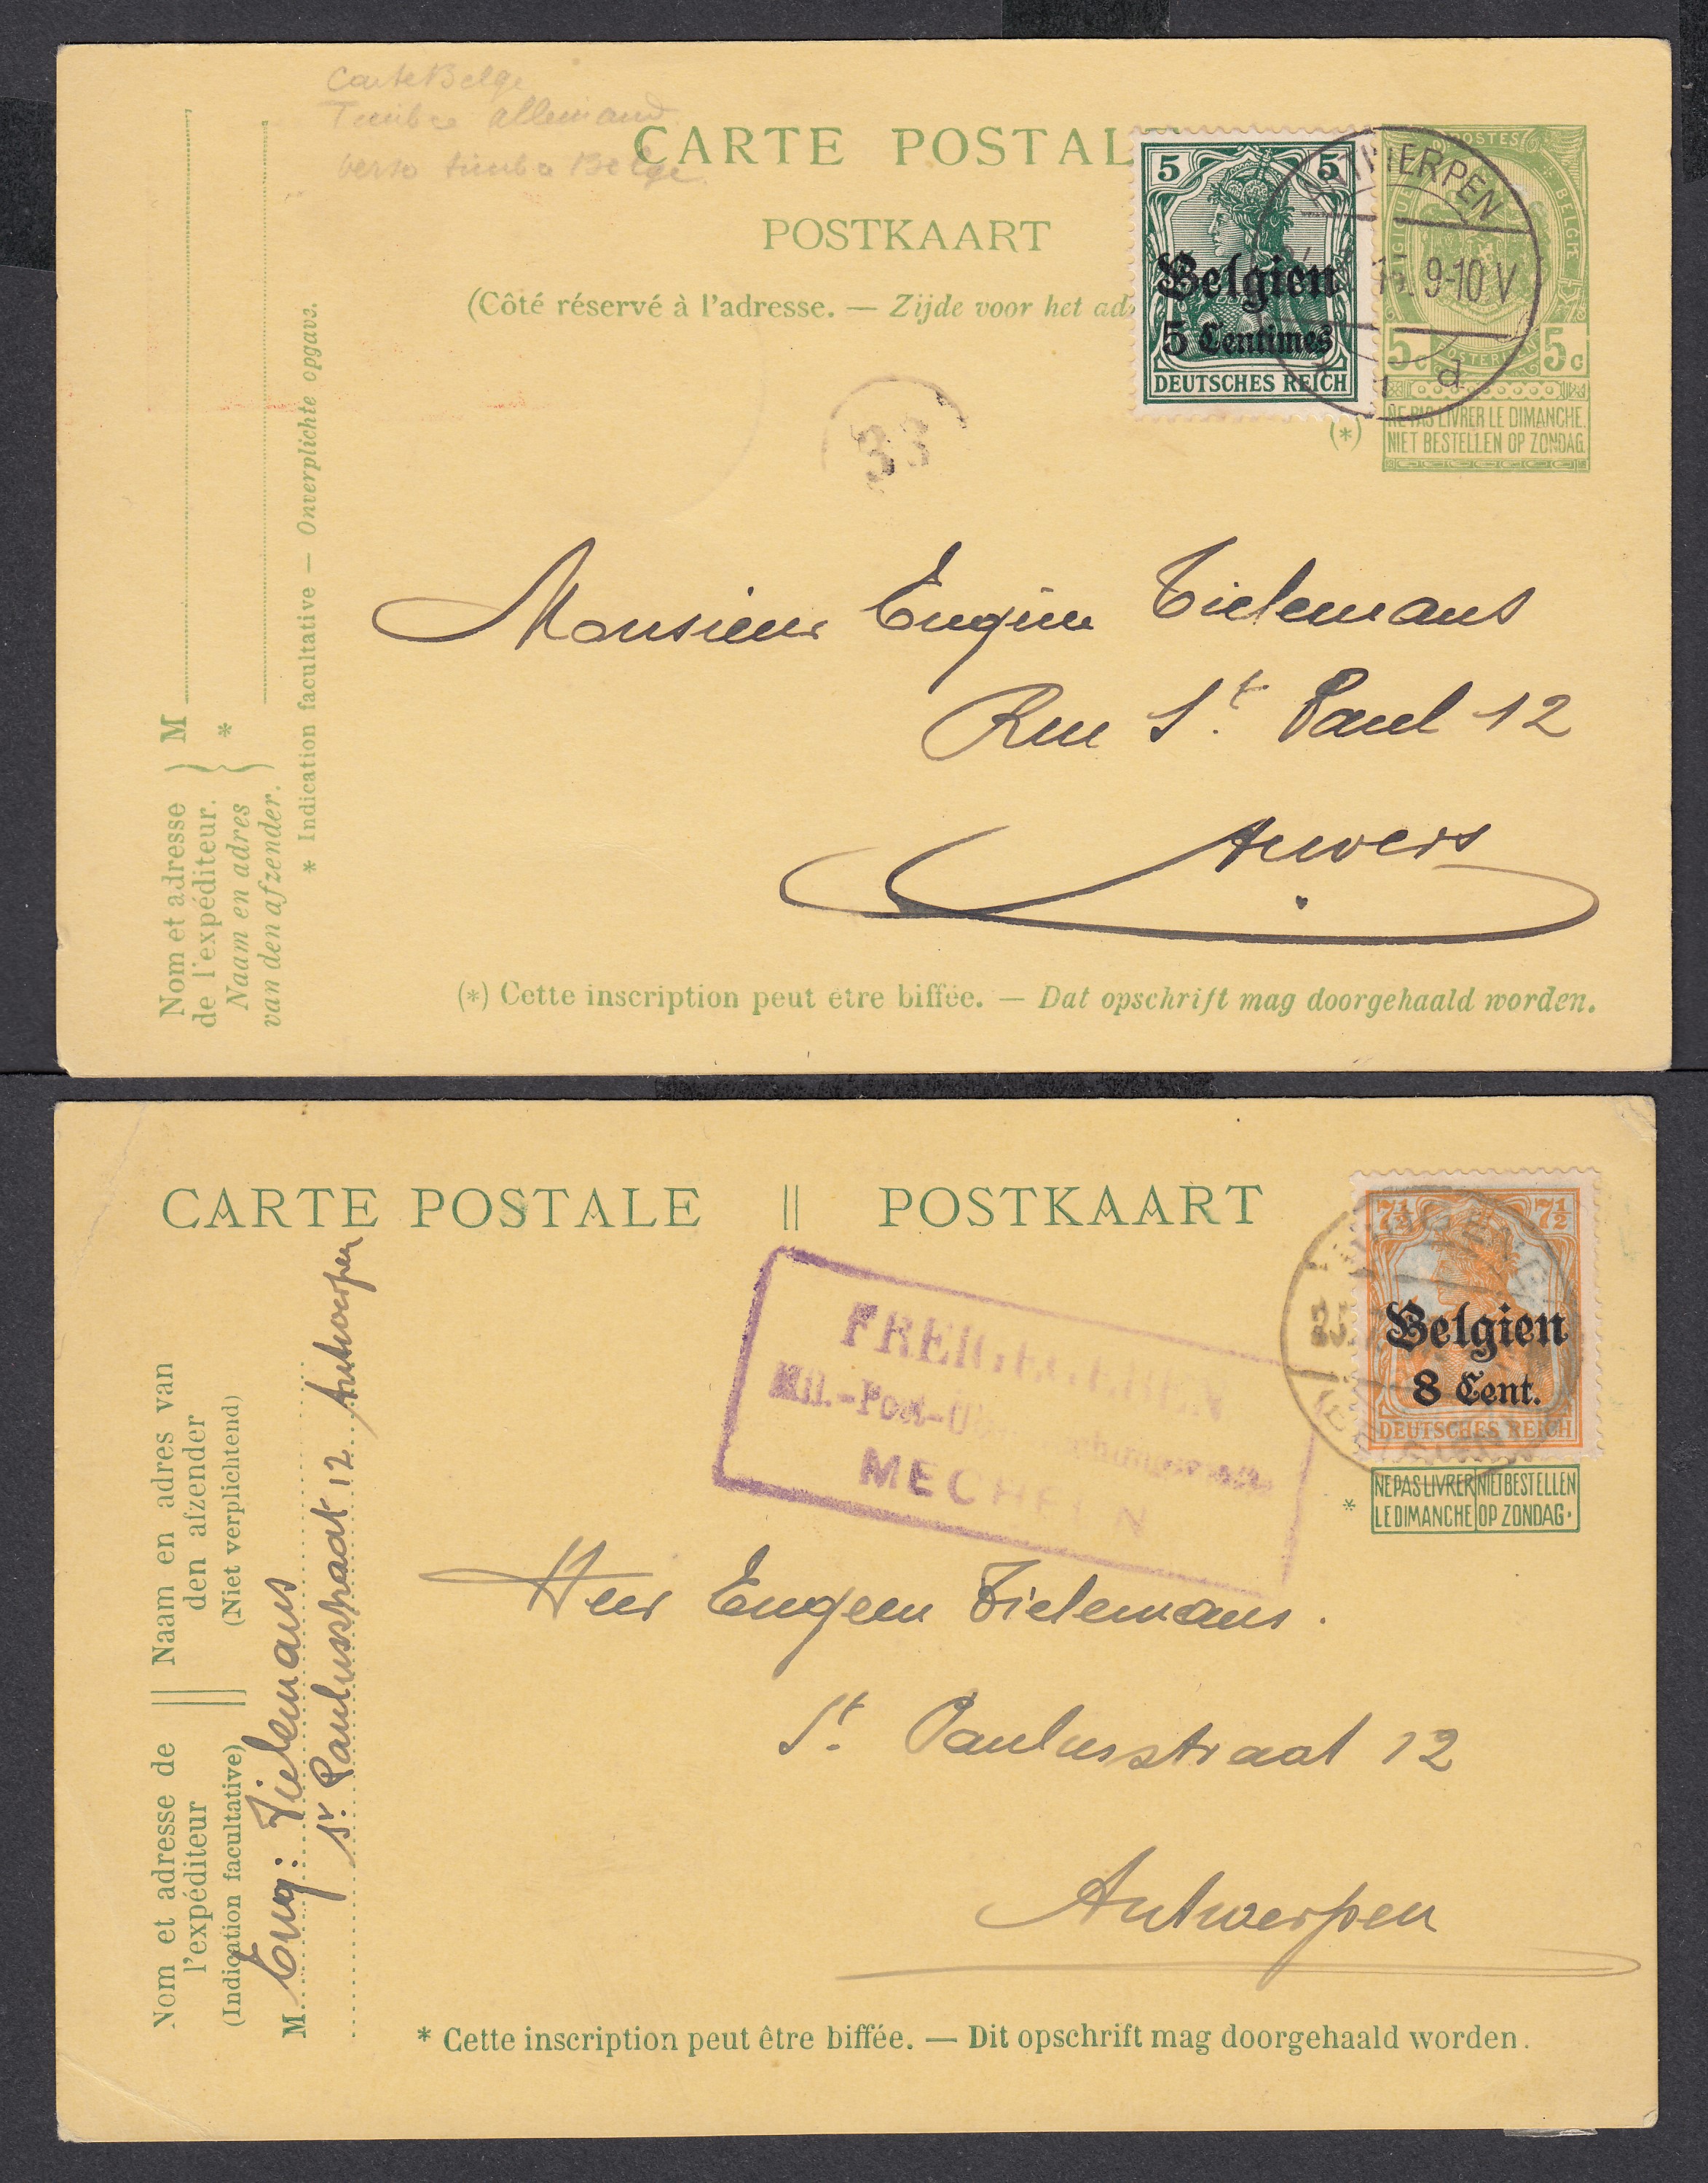 Carte Belge
Timbre allemand
verso timbre Belge
CARTE POSTAL
POSTKAART
(Côté réservé à l'adresse. — Zijde voor het ad
5 5
Belgien
5 Centimes
DEUTSCHES REICH
9-10 V
d
POSTES
BELGIE
5c 5c
NE PAS LIVRER LE DIMANCHE.
NIET BESTELLEN OP ZONDAG.
(*)
33
Monsieur Eugène Tielemans
Rue St. Paul 12
Anvers
M
*
Nom et adresse
de l'expéditeur.
Naam en adres
van den afzender.
* Indication facultative — Onverplichte opgave.
(*) Cette inscription peut être biffée. — Dat opschrift mag doorgehaald worden.
CARTE POSTALE || POSTKAART
7½ 7½
Belgien
8 Cent.
DEUTSCHES REICH
NE PAS LIVRER NIET BESTELLEN
LE DIMANCHE OP ZONDAG.
*
FREIGEGEBEN
Mil.-Post-
MECHELN
Heer Eugeen Tielemans.
St. Paulusstraat 12
Antwerpen
Nom et adresse de
l'expéditeur
(Indication facultative)
Naam en adres van
den afzender
(Niet verplichtend)
M. Eug: Tielemans
St. Paulusstraat 12 Antwerpen
* Cette inscription peut être biffée. — Dit opschrift mag doorgehaald worden.